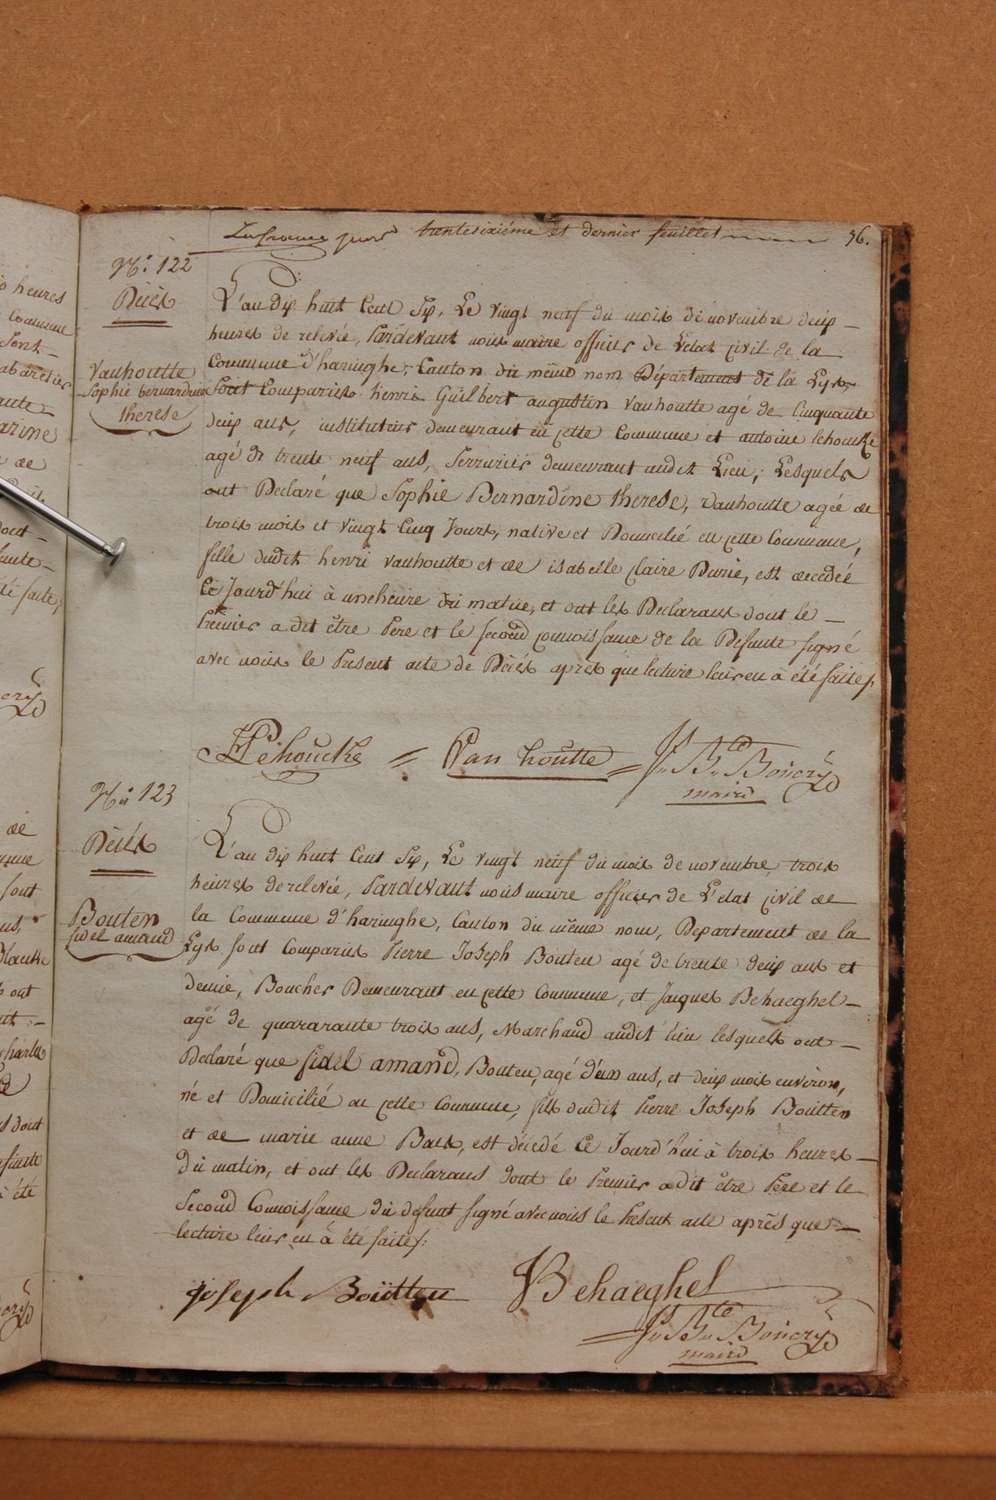 trentesixiéme et dernier feuillet 36.
N.º 122
Décès
Vanhoutte
Sophie bernardine
therese
L'an dix huit Cent Six, Le vingt neuf du mois de novembre deux
heures de relevée, Pardevant nous maire officier de L'état civil de la
Commune d'haringhe, Canton du même nom Département de la Lys
Sont Comparus henri Guilbert augustin vanhoutte agé de Cinquante
deux ans, instituteur demeurant en cette Commune et antoine Lehoucke
agé de trente neuf ans, Serrurier demeurant audit Lieu; Lesquels
ont Declaré que Sophie Bernardine therese, vanhoutte agée de
trois mois et vingt Cinq Jours, native et Domicilié en cette Commune,
fille dudit henri vanhoutte et de isabelle Claire Durie, est decedée
Ce Jourd'hui à une heure du matin, et ont les Declarans dont le
Premier a dit être Pere et le second connoissance de la Defunte signé
avec nous le Present acte de Décès après que lecture leur en à été faite.
Lehoucke = Van houtte = J.n B.te Boncry
maire
N.º 123
Décès
Bouten
fidel amand
L'an dix huit Cent Six, Le vingt neuf du mois de novembre, trois
heures de relevée, Pardevant nous maire officier de L'état civil de
la Commune d'haringhe, Canton du même nom, Departement de la
Lys sont Comparus Pierre Joseph Bouten agé de trente deux ans et
demie, Boucher Demeurant en cette Commune, et Jacques Behaeghel
agé de quararante trois ans, Marchand audit lieu lesquels ont
Declaré que fidel amand, Bouten, agé d'un ans, et deux mois environ,
né et Domicilié en cette Commune, fils dudit Pierre Joseph Boutten
et de marie anne Baes, est décédé Ce Jourd'hui à trois heures
du matin, et ont les Declarans dont le Premier a dit être Pere et le
Second Connoissance du defunt signé avec nous le Présent acte après que
lecture leur en à été faite.
joseph Boutten Behaeghel
J.n B.te Boncry
maire